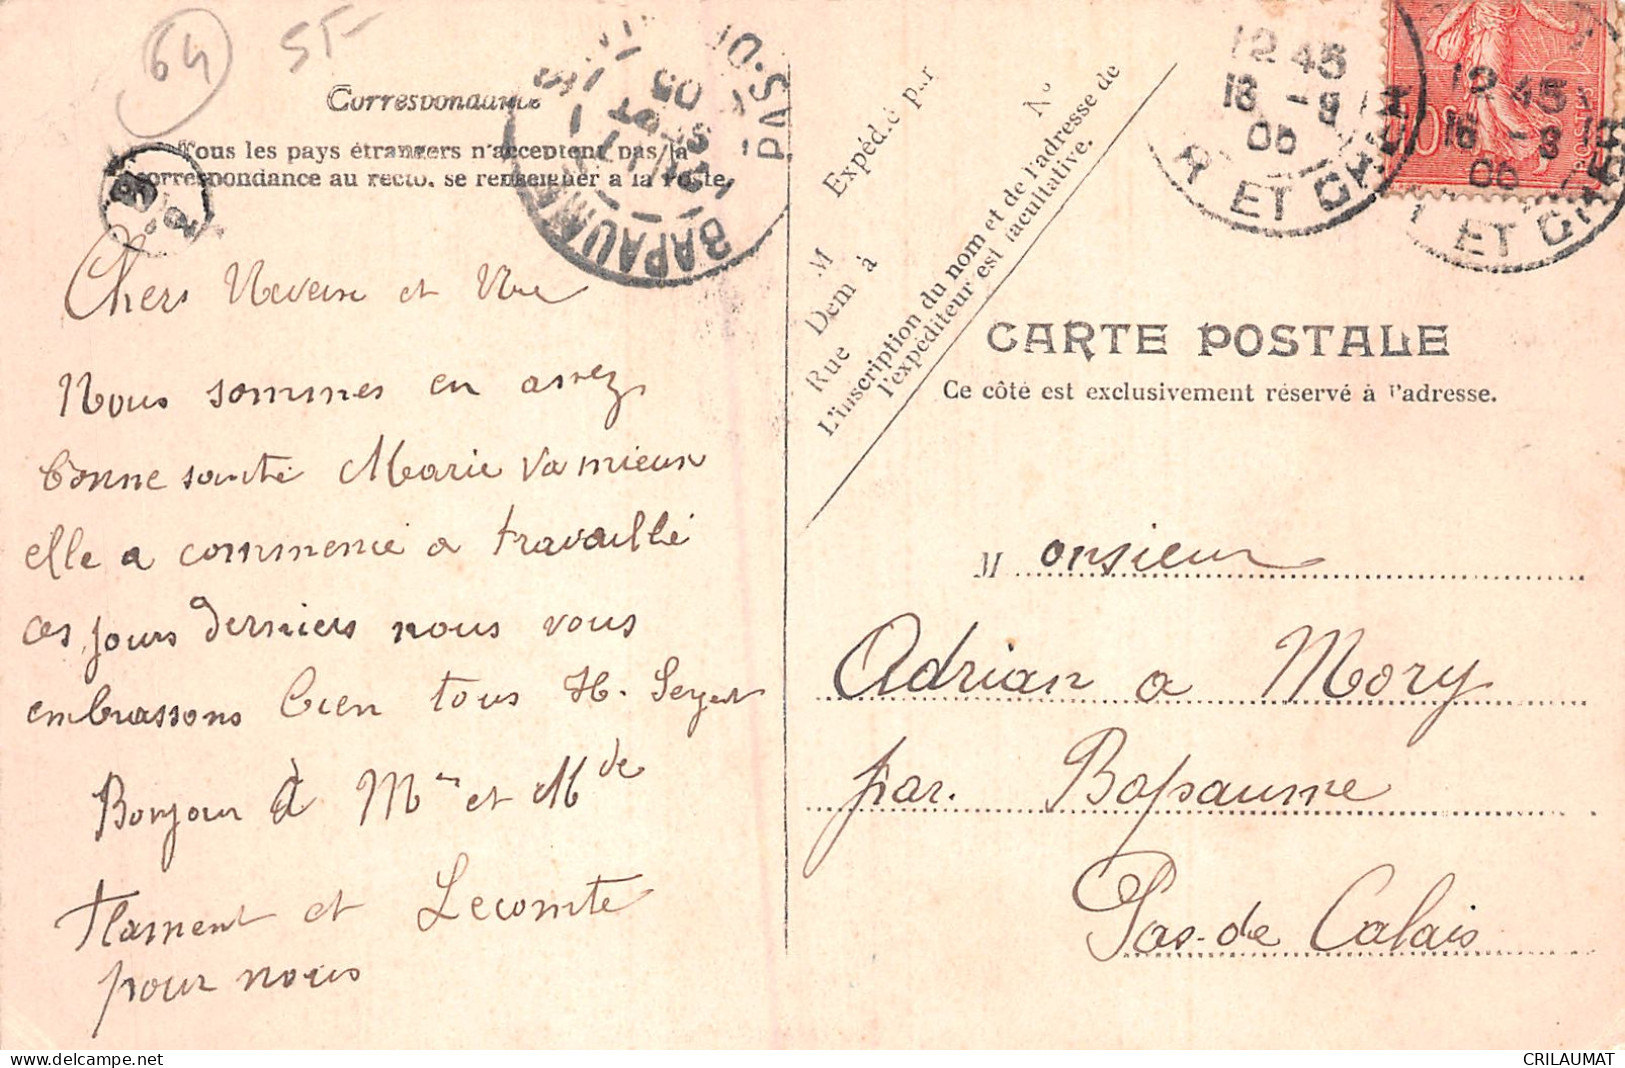 64 5T-
Correspondance
Tous les pays étrangers n'acceptent pas la
correspondance au recto. se renseigner à la Poste.
BAPAUME
PAS-D
Chers Neveu et Nce
Nous sommes en assez
bonne santé Marie va mieux
elle a commencé a travaillé
ces jours derniers nous vous
embrassons bien tous H. Seget
Bonjour à Mr et Mde
Flament et Lecomte
pour nous
Expédié par
N°
M
Dem à
Rue
L'inscription du nom et de l'adresse de
l'expéditeur est facultative.
12 45
18 - 8
06
R ET
12 45
18 - 8
06
ET
10c
POSTES
CARTE POSTALE
Ce côté est exclusivement réservé à l'adresse.
Monsieur
Adrian a Mory
par. Bapaume
Pas-de Calais
CRILAUMAT
delcampe.net